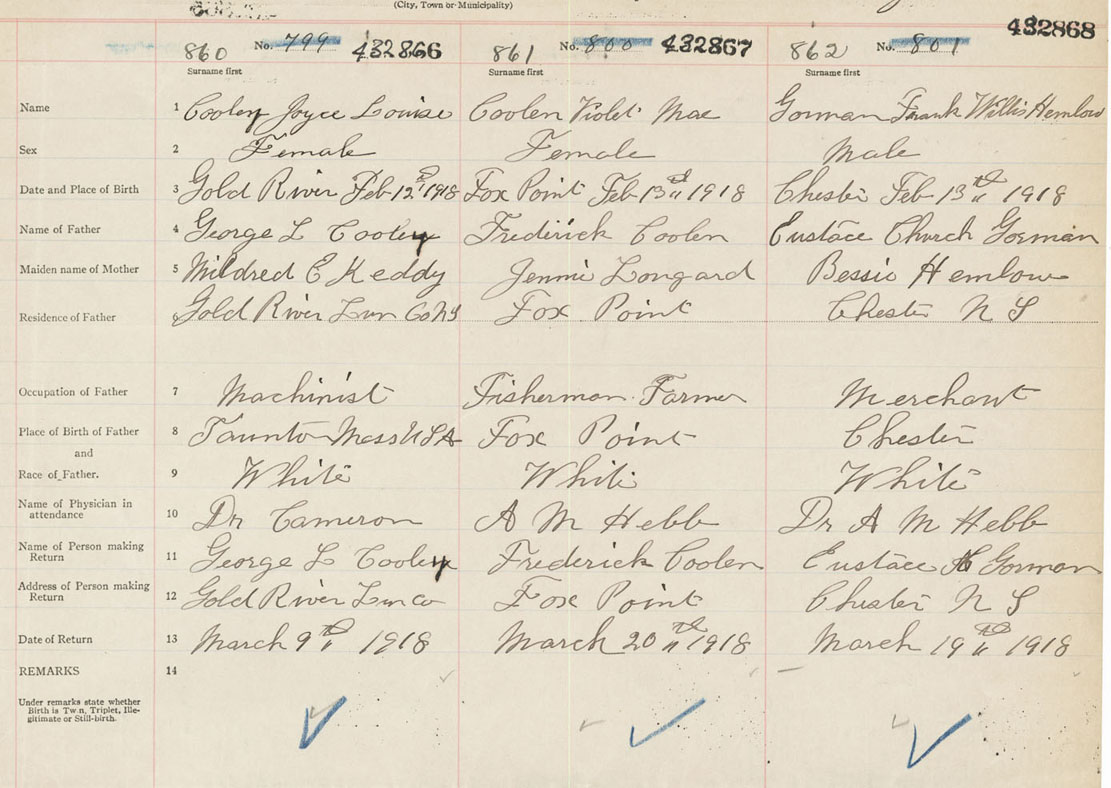 (City, Town or Municipality)
432868
860 No. 799 432866 861 No. 800 432867 862 No. 801
Surname first Surname first Surname first
Name 1 Cooley Joyce Louise Coolen Violet Mae Gorman Frank Willis Hemlow
Sex 2 Female Female Male
Date and Place of Birth 3 Gold River Feb 12th 1918 Fox Point Feb 13th 1918 Chester Feb 13th 1918
Name of Father 4 George L Cooley Frederick Coolen Eustace Church Gorman
Maiden name of Mother 5 Mildred E Keddy Jennie Longard Bessie Hemlow
Residence of Father 6 Gold River Lun Co NS Fox Point Chester N S
Occupation of Father 7 Machinist Fisherman Farmer Merchant
Place of Birth of Father 8 Taunton Mass USA Fox Point Chester
and
Race of Father. 9 White White White
Name of Physician in
attendance 10 Dr Cameron A M Hebb Dr A M Hebb
Name of Person making
Return 11 George L Cooley Frederick Coolen Eustace Gorman
Address of Person making
Return 12 Gold River Lun Co Fox Point Chester N S
Date of Return 13 March 9th 1918 March 20th 1918 March 19th 1918
REMARKS 14
Under remarks state whether
Birth is Twin, Triplet, Ille-
gitimate or Still-birth.